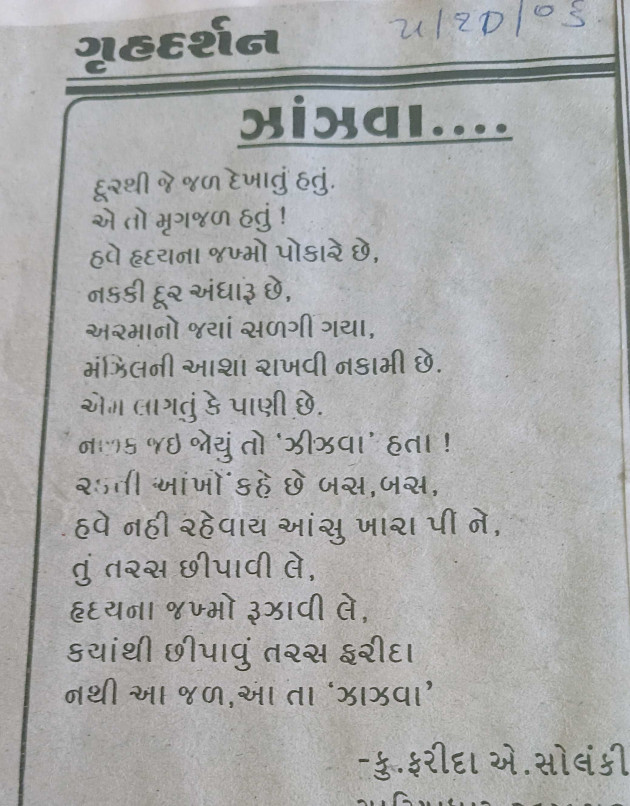 ગૃહદર્શન
૫/૧૦/૦૬
ઝાંઝવા....
દૂરથી જે જળ દેખાતું હતું.
એ તો મૃગજળ હતું !
હવે હૃદયના જખ્મો પોકારે છે,
નકકી દૂર અંધારૂ છે,
અરમાનો જયાં સળગી ગયા,
મંઝિલની આશા રાખવી નકામી છે.
એમ લાગતું કે પાણી છે.
જઇ જોયું તો ‘ઝીઝવા’ હતા !
આંખોં કહે છે બસ,બસ,
હવે નહી રહેવાય આંસુ ખારા પીં ને,
તું તરસ છીપાવી લે,
હૃદયના જખ્મો રૂઝાવી લે,
કયાંથી છીપાવું તરસ ફરીદા
નથી આ જળ,આ તા ‘ઝાઝવા’
-કુ.ફરીદા એ.સોલંકી